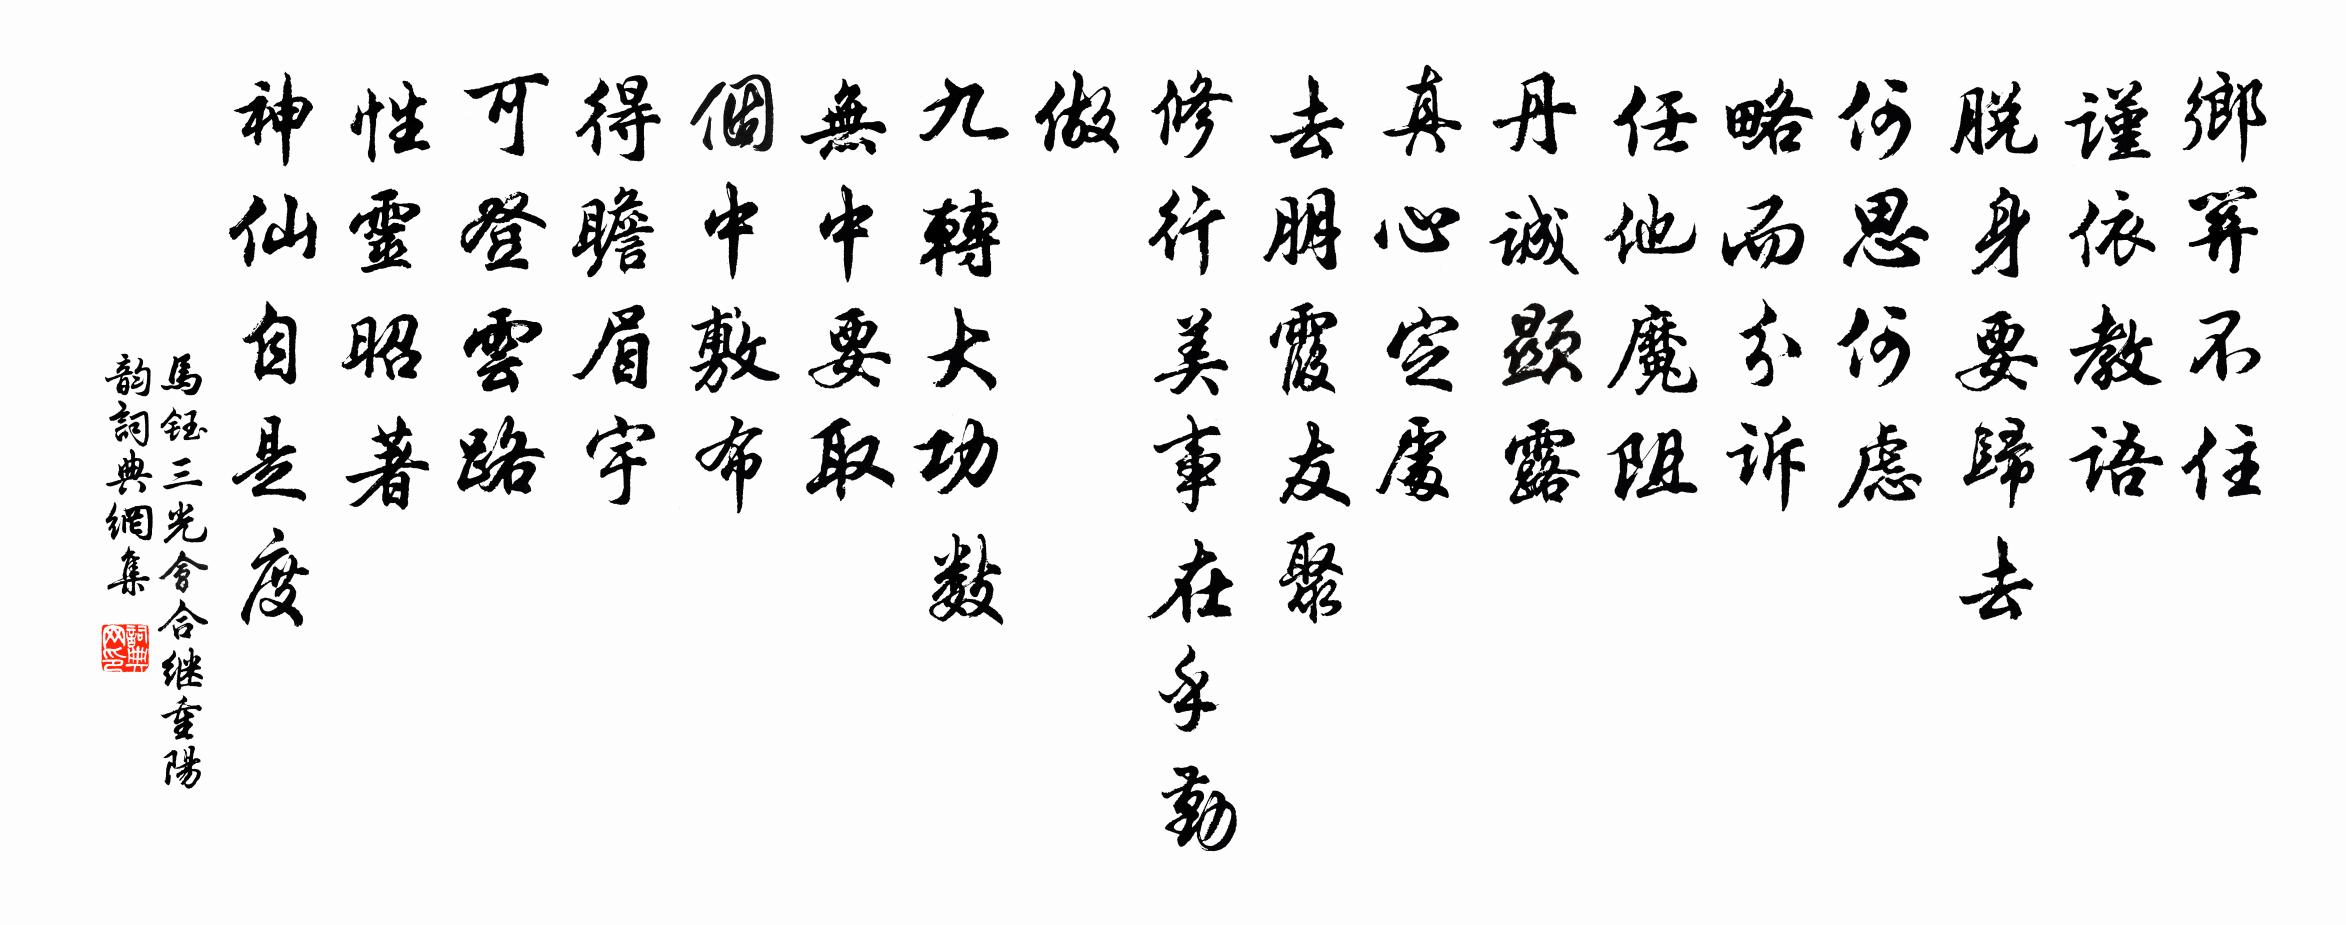 鄉關不住
謹依教語
脫身要歸去
何思何慮
略而分訴
任他魔阻
丹誠顯露
真心定處
去朋霞友聚
修行美事在乎勤
做
九轉大功數
無中要取
個中敷布
得瞻眉宇
可登雲路
性靈昭著
神仙自是度
馬鈺三光會合继重陽
韵詞典網集
詞典
网印